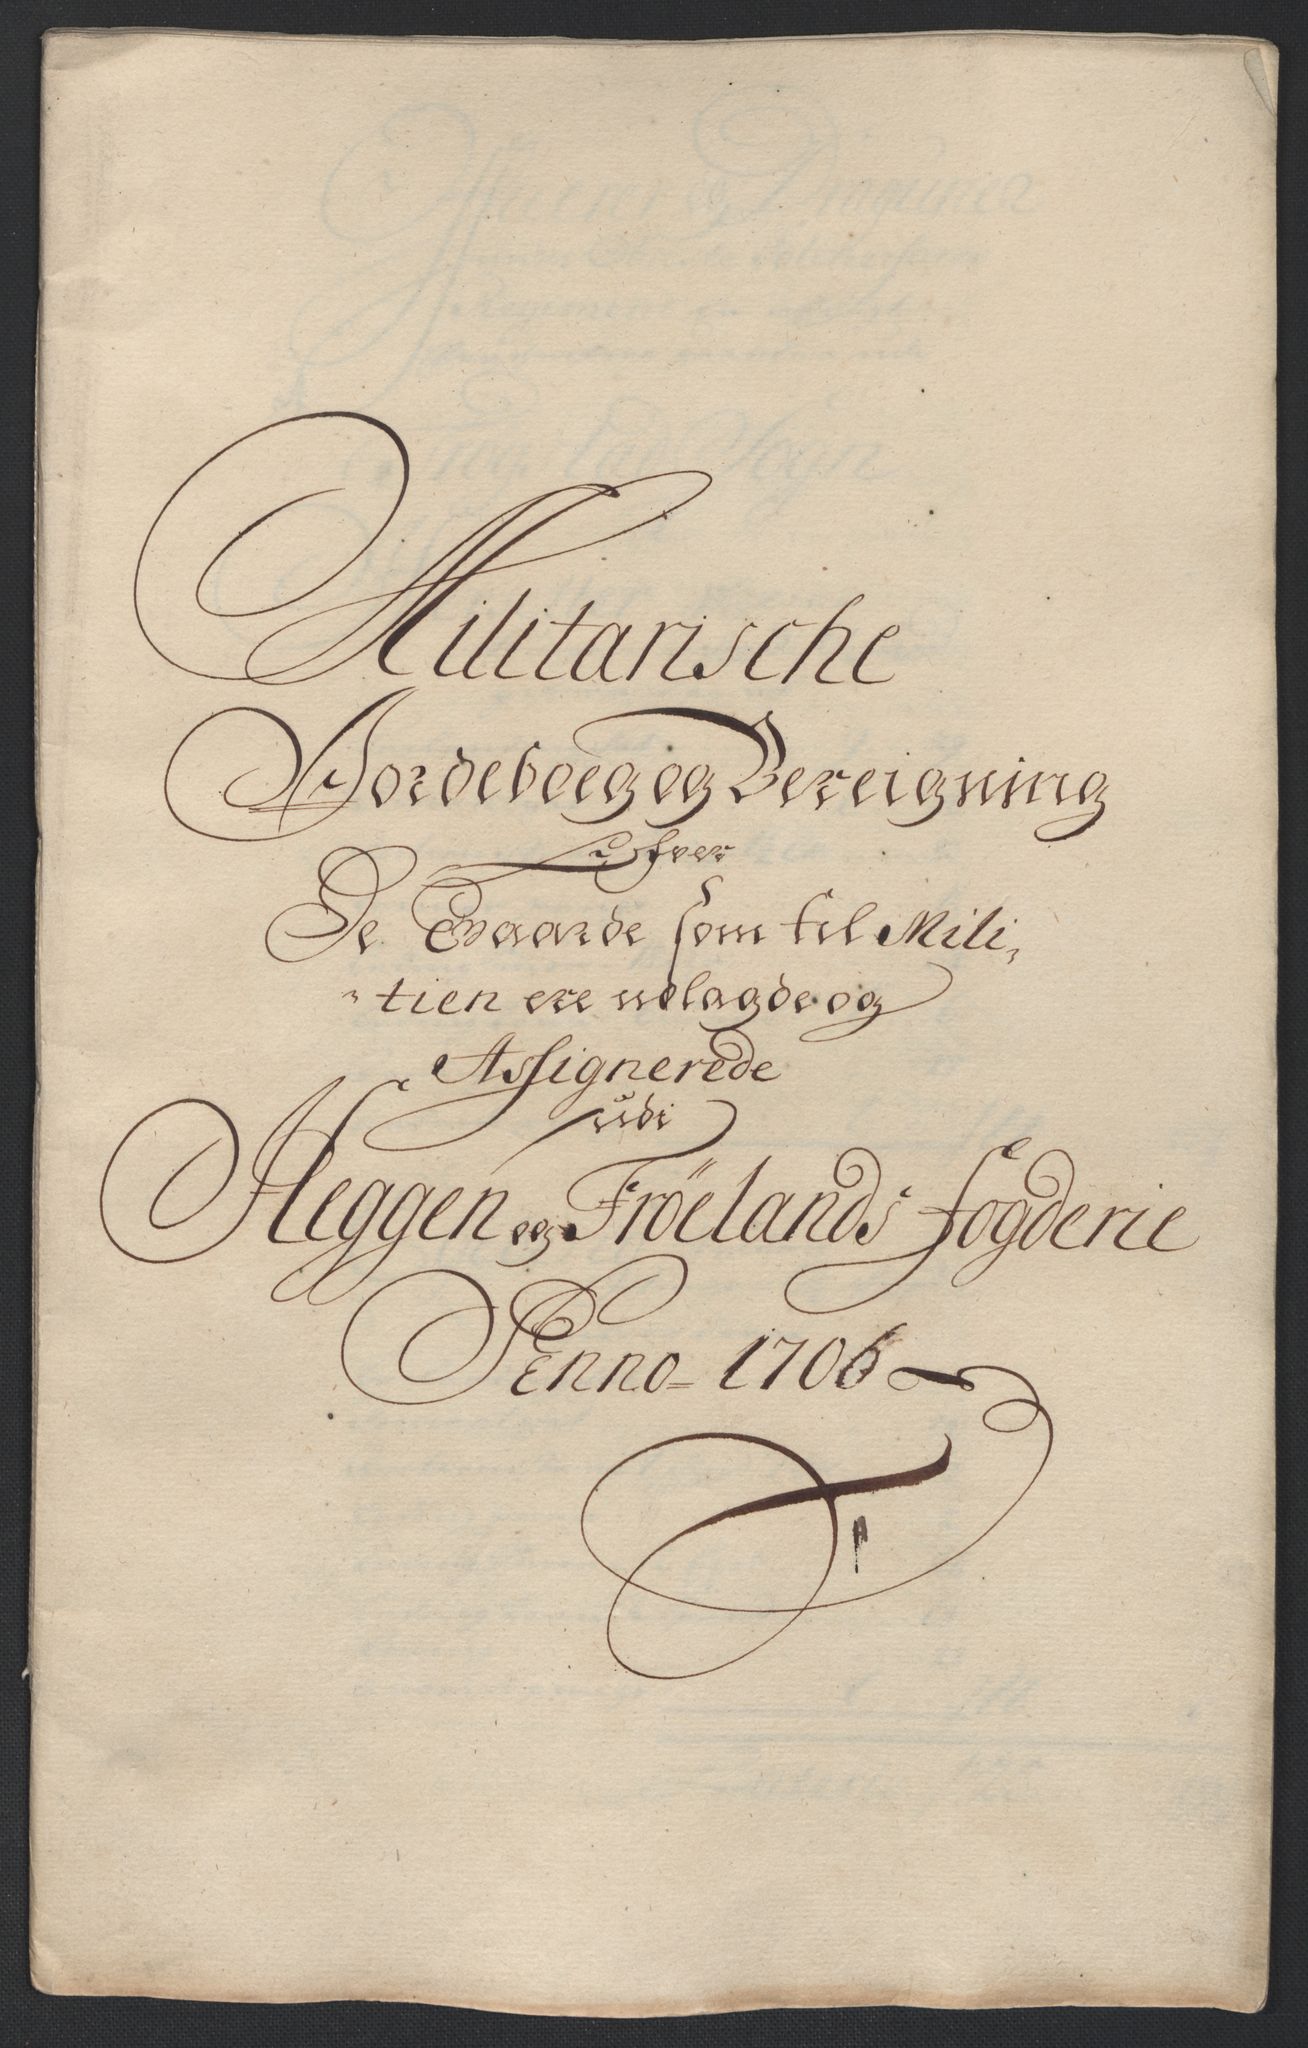 Militarische
Jordeboeg og Bereigning
Ofver
De Gaarde som til Mili-
-tien ere udlagde og
Assignerede
udi
Heggen og Fröelands fogderie
Anno 1706